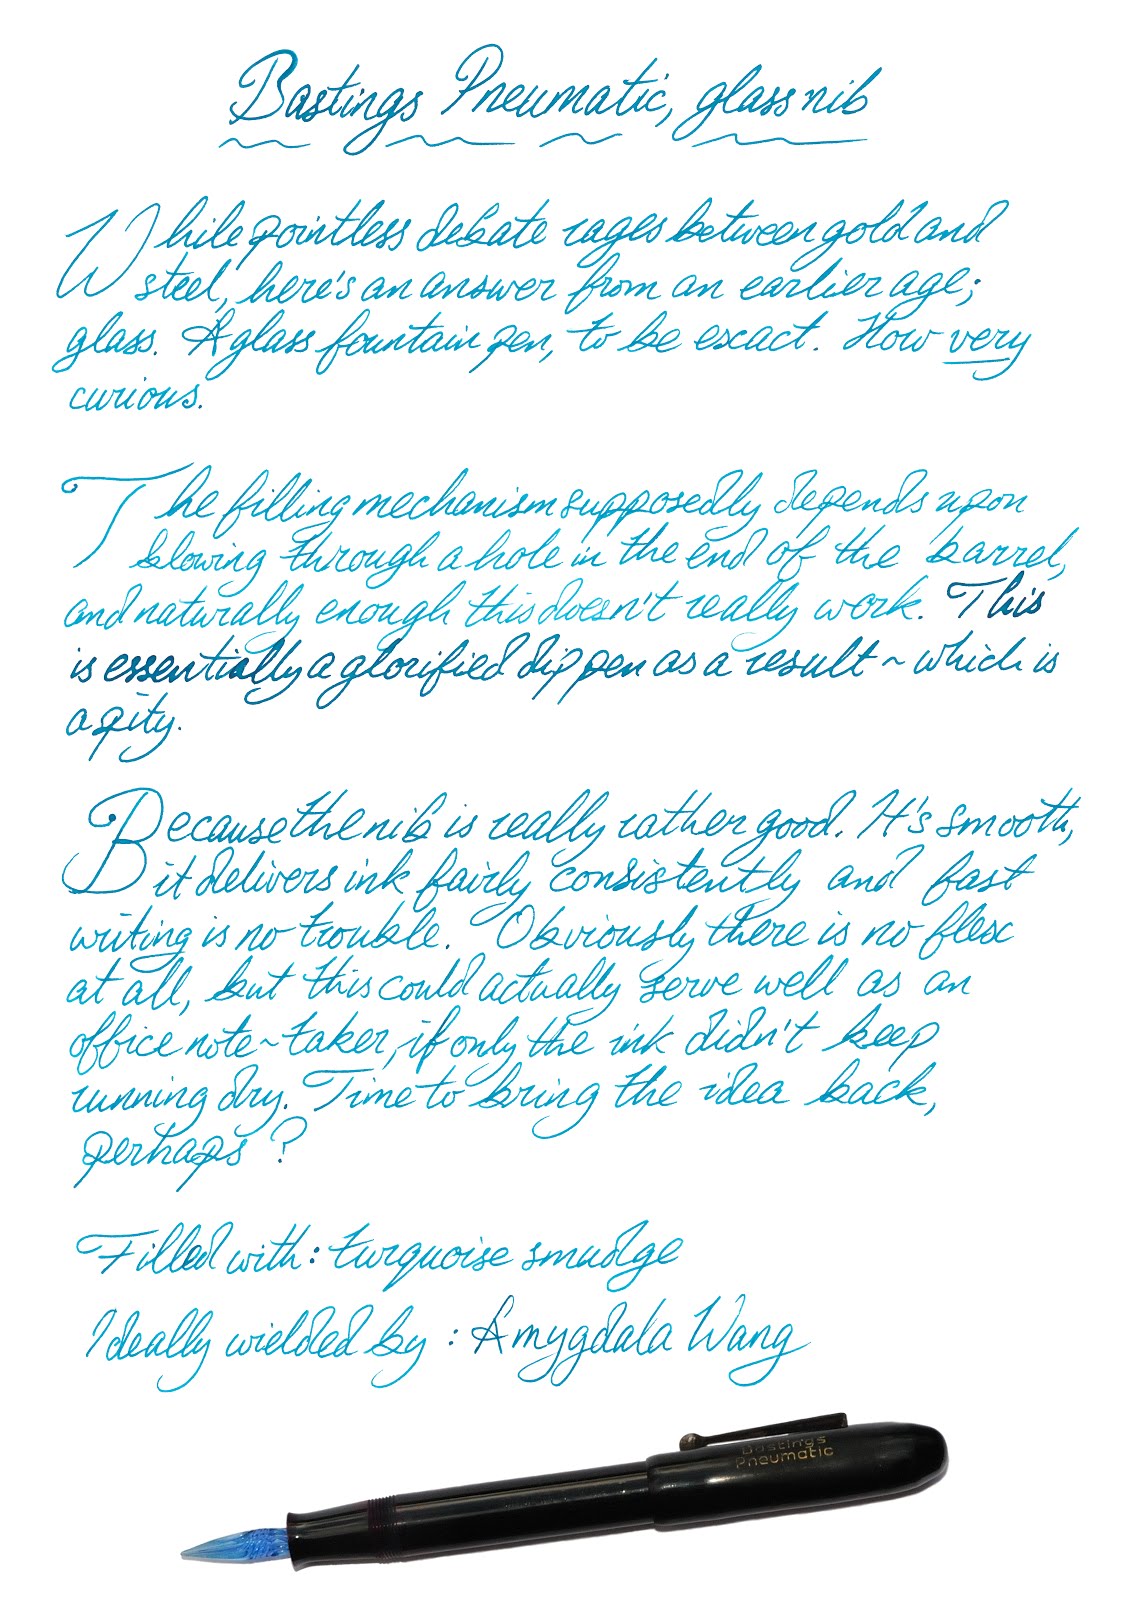 Bastings Pneumatic, glass nib
While pointless debate rages between gold and
steel, here's an answer from an earlier age;
glass. A glass fountain pen, to be exact. How very
curious.
The filling mechanism supposedly depends upon
blowing through a hole in the end of the barrel,
and naturally enough this doesn't really work. This
is essentially a glorified dip pen as a result ~ which is
a pity.
Because the nib is really rather good. It's smooth,
it delivers ink fairly consistently and fast
writing is no trouble. Obviously there is no flex
at all, but this could actually serve well as an
office note~taker, if only the ink didn't keep
running dry. Time to bring the idea back,
perhaps?
Filled with: turquoise smudge
Ideally wielded by: Amygdala Wang
Bastings
Pneumatic